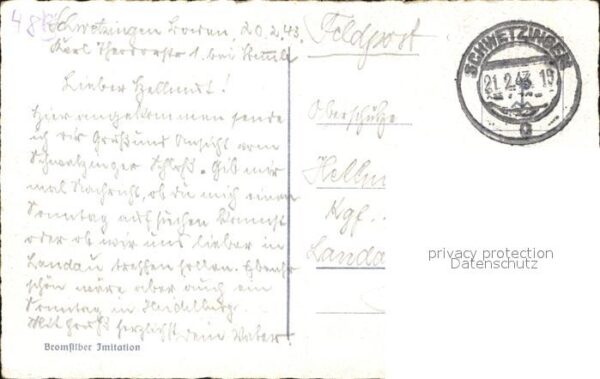 48
Schwetzingen Baden, 20.2.43.
Karl Theodorstr 1. bei
Lieber Hellmut!
Hier angekommen sende
ich dir Gruß und Ansicht vom
Schwetzinger Schloß. Gib mir
mal Nachricht, ob du mich einen
Sonntag aufsuchen kommst
oder ob wir uns lieber in
Landau treffen sollen. Ebenso
schön wäre aber auch ein
Sonntag in Heidelberg.
Mit Gruß herzlichst dein Vater!
Bromsilber Imitation
Feldpost
Oberschütze
Hellm
Kgf.
Landa
SCHWETZINGEN
21.2.43.19
g
privacy protection
Datenschutz